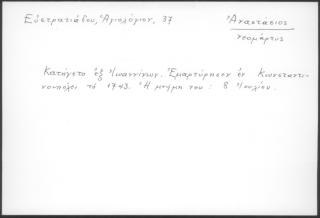 Εὐστρατιάδου, Ἁγιολόγιον, 37
Ἀναστάσιος
νεομάρτυς
Κατάγετο ἐξ Ἰωαννίνων. Ἐμαρτύρησεν ἐν Κωνσταντι-
νουπόλει τὸ 1743. Ἡ μνήμη του : 8 Ἰουλίου.